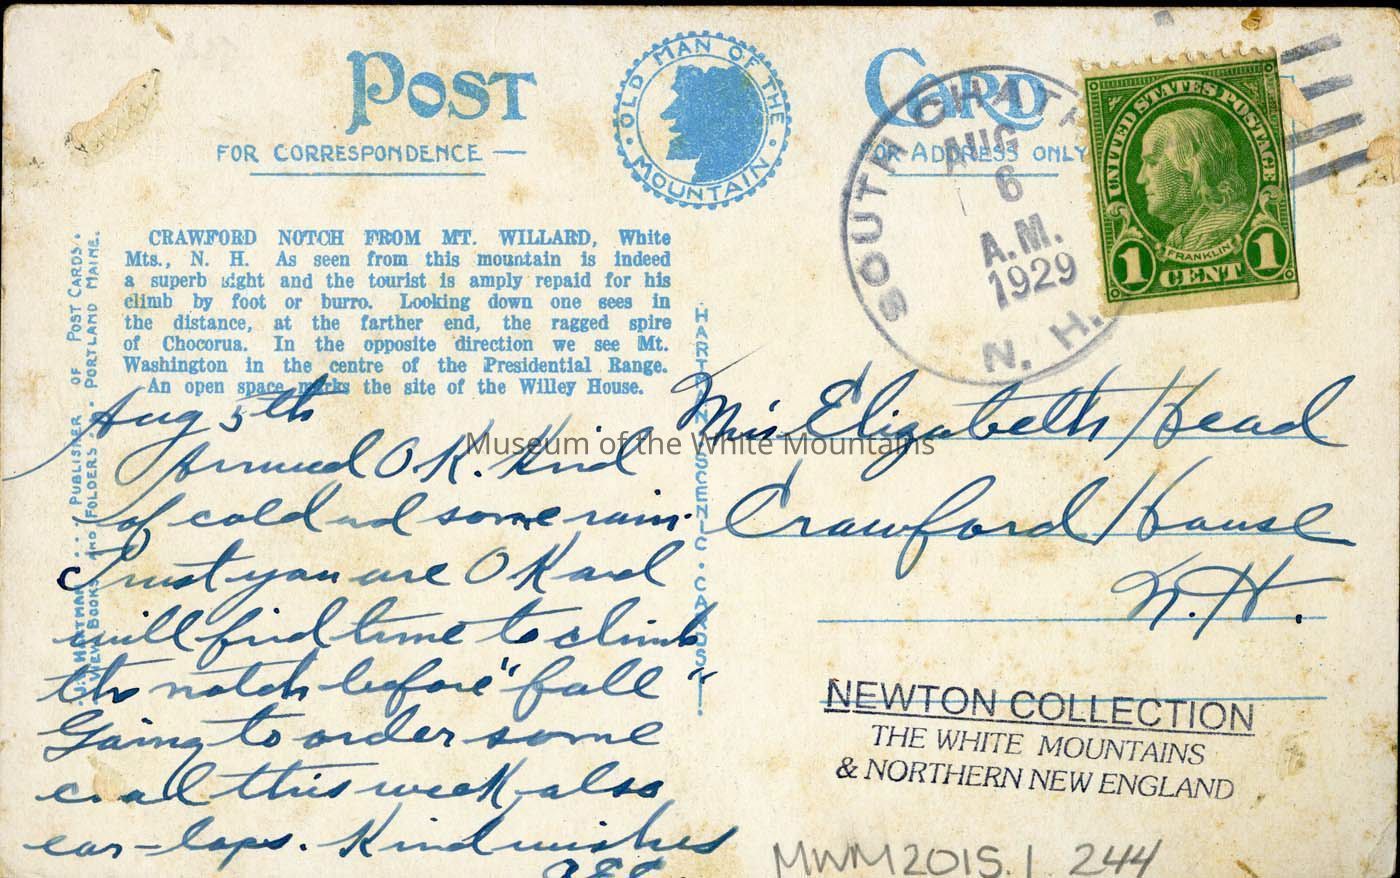 POST CARD
OLD MAN OF THE
MOUNTAIN
FOR CORRESPONDENCE
FOR ADDRESS ONLY
SOUTH CHATH
AUG
6
A.M.
1929
N. H.
UNITED STATES POSTAGE
FRANKLIN
1 CENT 1
CRAWFORD NOTCH FROM MT. WILLARD, White
Mts., N. H. As seen from this mountain is indeed
a superb sight and the tourist is amply repaid for his
climb by foot or burro. Looking down one sees in
the distance, at the farther end, the ragged spire
of Chocorua. In the opposite direction we see Mt.
Washington in the centre of the Presidential Range.
An open space marks the site of the Willey House.
PUBLISHER OF POST CARDS
VIEW BOOKS AND FOLDERS PORTLAND MAINE.
SCENIC CARDS
Aug 5th
Arrived OK. Kind
of cold and some rain.
Trust you are OK and
will find time to climb
the notch before "fall"
Going to order some
coal this week, also
ear-laps. Kind wishes
Miss Elizabeth Head
Crawford House
N.H.
Museum of the White Mountains
NEWTON COLLECTION
THE WHITE MOUNTAINS
& NORTHERN NEW ENGLAND
MWM2015.1.244